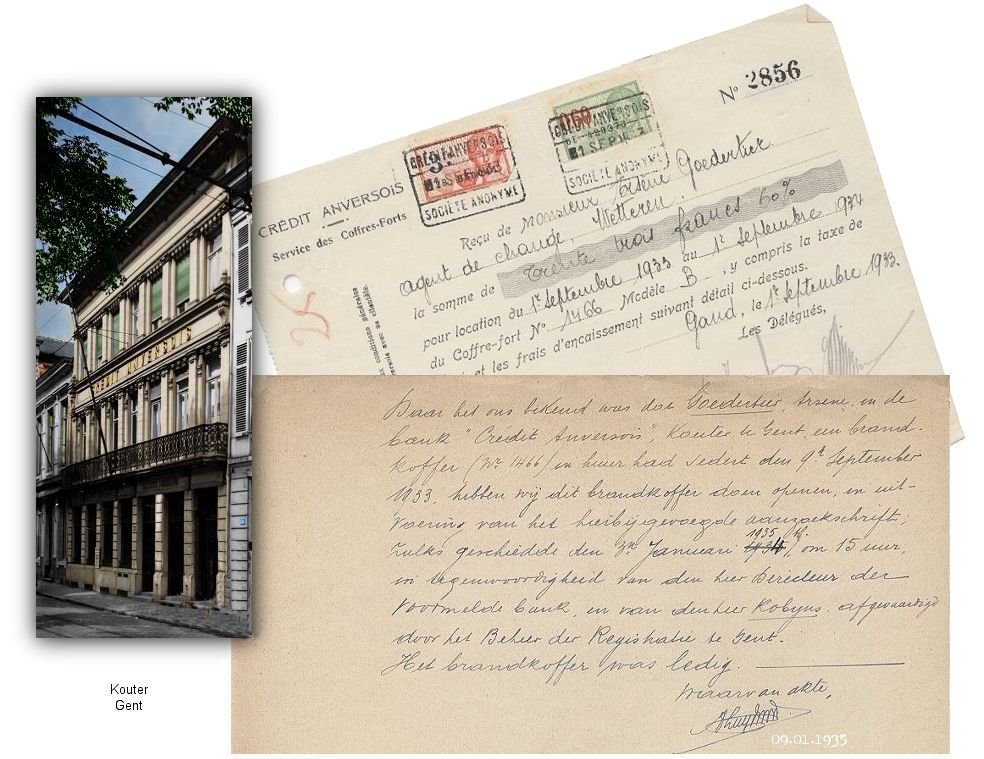 CRÉDIT ANVERSOIS
Kouter
Gent
N° 2856
CRÉDIT ANVERSOIS
SOCIÉTÉ ANONYME
CRÉDIT ANVERSOIS
1 SEPT
SOCIÉTÉ ANONYME
CRÉDIT ANVERSOIS
Service des Coffres-Forts
Reçu de Monsieur Arsène Goedertier
agent de change, Wetteren
la somme de Trente trois francs 60%
pour location du 1r Septembre 1933 au 1r Septembre 1934
du Coffre-fort N° 1466 Modèle B, y compris la taxe de
et les frais d'encaissement suivant détail ci-dessous.
Gand, le 1r Septembre 1933.
Les Délégués,
Daar het ons bekend was dat Goedertier, Arsene, in de
bank "Crédit Anversois", Kouter te Gent, een brand-
koffer (Nr 1466) in huur had sedert den 9t September
1933, hebben wij dit brandkoffer doen openen, in uit-
voering van het hierbijgevoegde aanzoekschrift;
zulks geschiedde den 3n Januari 1935 om 15 uur,
in tegenwoordigheid van den heer Directeur der
voormelde bank, en van den heer Robyns, afgevaardigd
door het Beheer der Registratie te Gent.
Het brandkoffer was ledig.
Waarvan akte,
09.01.1935